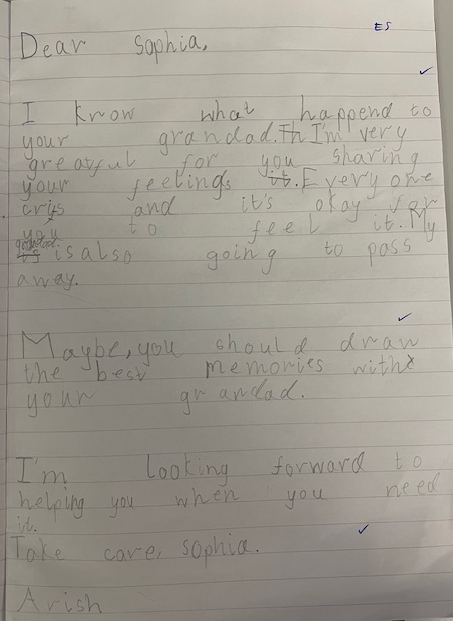 ES
Dear Sophia,
I know what happend to
your grandad. I'm very
greatful for you sharing
your feelings it. Every one
cris and it's okay for
you to feel it. My
grandad is also going to pass
away.
Maybe, you should draw
the best memories with
your grandad.
I'm looking forward to
helping you when you need
it.
Take care, Sophia.
Arish